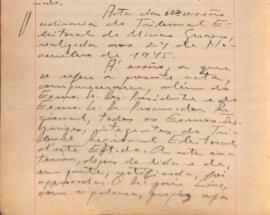 Acta da 60ª sessão
ordinaria do Tribunal E-
leitoral de Minas Geraes,
realizada aos 24 de No-
vembro de 1945.
A' sessão, a que
se refere a presente acta,
compareceram, além do
Exmo. Sr. Des. Presidente e do
Exmo. Sr. Dr. Procurador Re-
gional, todos os Exmos. Srs.
Juizes, integrantes do Tri-
bunal Regional Eleitoral
d'este Estado. A acta an-
terior, depois de lida e de
em parte, rectificada, foi
approvada. O Sr.
com a palavra,